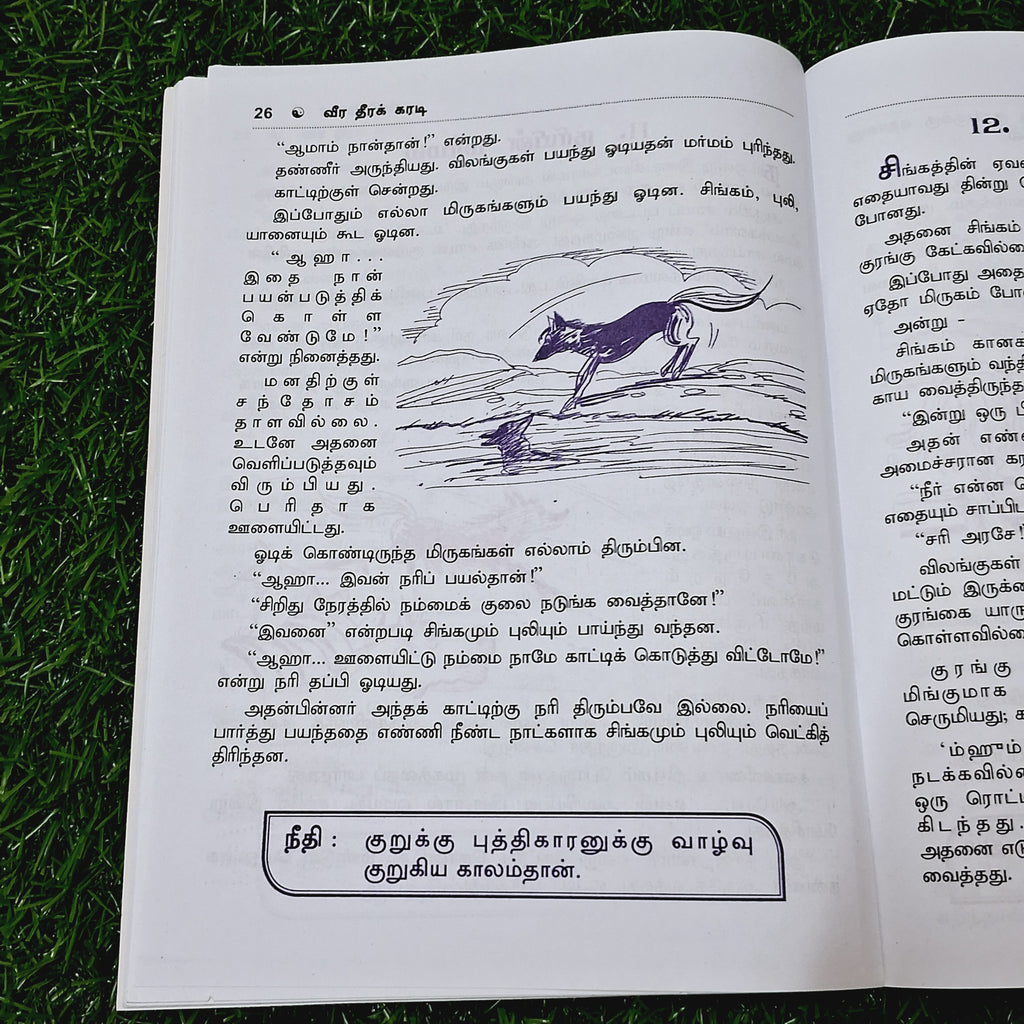 26 வீர தீரக் கரடி
“ஆமாம் நான்தான்!” என்றது.
தண்ணீர் அருந்தியது. விலங்குகள் பயந்து ஓடியதன் மர்மம் புரிந்தது.
காட்டிற்குள் சென்றது.
இப்போதும் எல்லா மிருகங்களும் பயந்து ஓடின. சிங்கம், புலி,
யானையும் கூட ஓடின.
“ஆஹா...
இதை நான்
பயன்படுத்திக்
கொள்ள
வேண்டுமே!”
என்று நினைத்தது.
மனதிற்குள்
சந்தோசம்
தாளவில்லை.
உடனே அதனை
வெளிப்படுத்தவும்
விரும்பியது.
பெரிதாக
ஊளையிட்டது.
ஓடிக் கொண்டிருந்த மிருகங்கள் எல்லாம் திரும்பின.
“ஆஹா... இவன் நரிப் பயல்தான்!”
“சிறிது நேரத்தில் நம்மைக் குலை நடுங்க வைத்தானே!”
“இவனை” என்றபடி சிங்கமும் புலியும் பாய்ந்து வந்தன.
“ஆஹா... ஊளையிட்டு நம்மை நாமே காட்டிக் கொடுத்து விட்டோமே!”
என்று நரி தப்பி ஓடியது.
அதன்பின்னர் அந்தக் காட்டிற்கு நரி திரும்பவே இல்லை. நரியைப்
பார்த்து பயந்ததை எண்ணி நீண்ட நாட்களாக சிங்கமும் புலியும் வெட்கித்
திரிந்தன.
நீதி : குறுக்கு புத்திகாரனுக்கு வாழ்வு
குறுகிய காலம்தான்.
12.
சிங்கத்தின்
எதையாவது தின்று
போனது.
அதனை சிங்கம்
குரங்கு
இப்போது
ஏதோ மிருகம்
அன்று -
சிங்கம்
மிருகங்களும்
காய
“இன்று ஒரு
அதன்
அமைச்சரான
“நீர் என்ன
எதையும்
“சரி அரசே!
விலங்குகள்
மட்டும்
குரங்கை
குரங்கு
மிங்குமாக
செருமியது;
‘ம்ஹும்
ஒரு
கிடந்தது.
அதனை
வைத்தது.